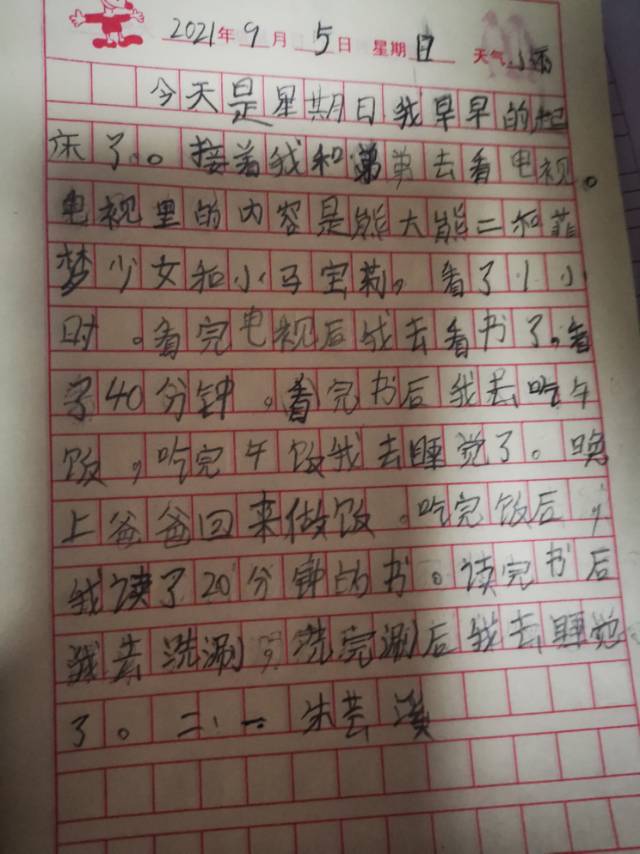 2021年9月5日 星期日 天气小雨
今天是星期日我早早的起
床了。接着我和弟弟去看电视。
电视里的内容是熊大熊二和菲
梦少女和小马宝莉,看了1小
时。看完电视后我去看书了,看
了40分钟。看完书后我去吃午
饭,吃完午饭我去睡觉了。晚
上爸爸回来做饭。吃完饭后,
我读了20分钟的书。读完书后
我去洗涮,洗完涮后我去睡觉
了。二、一 朱芸溪